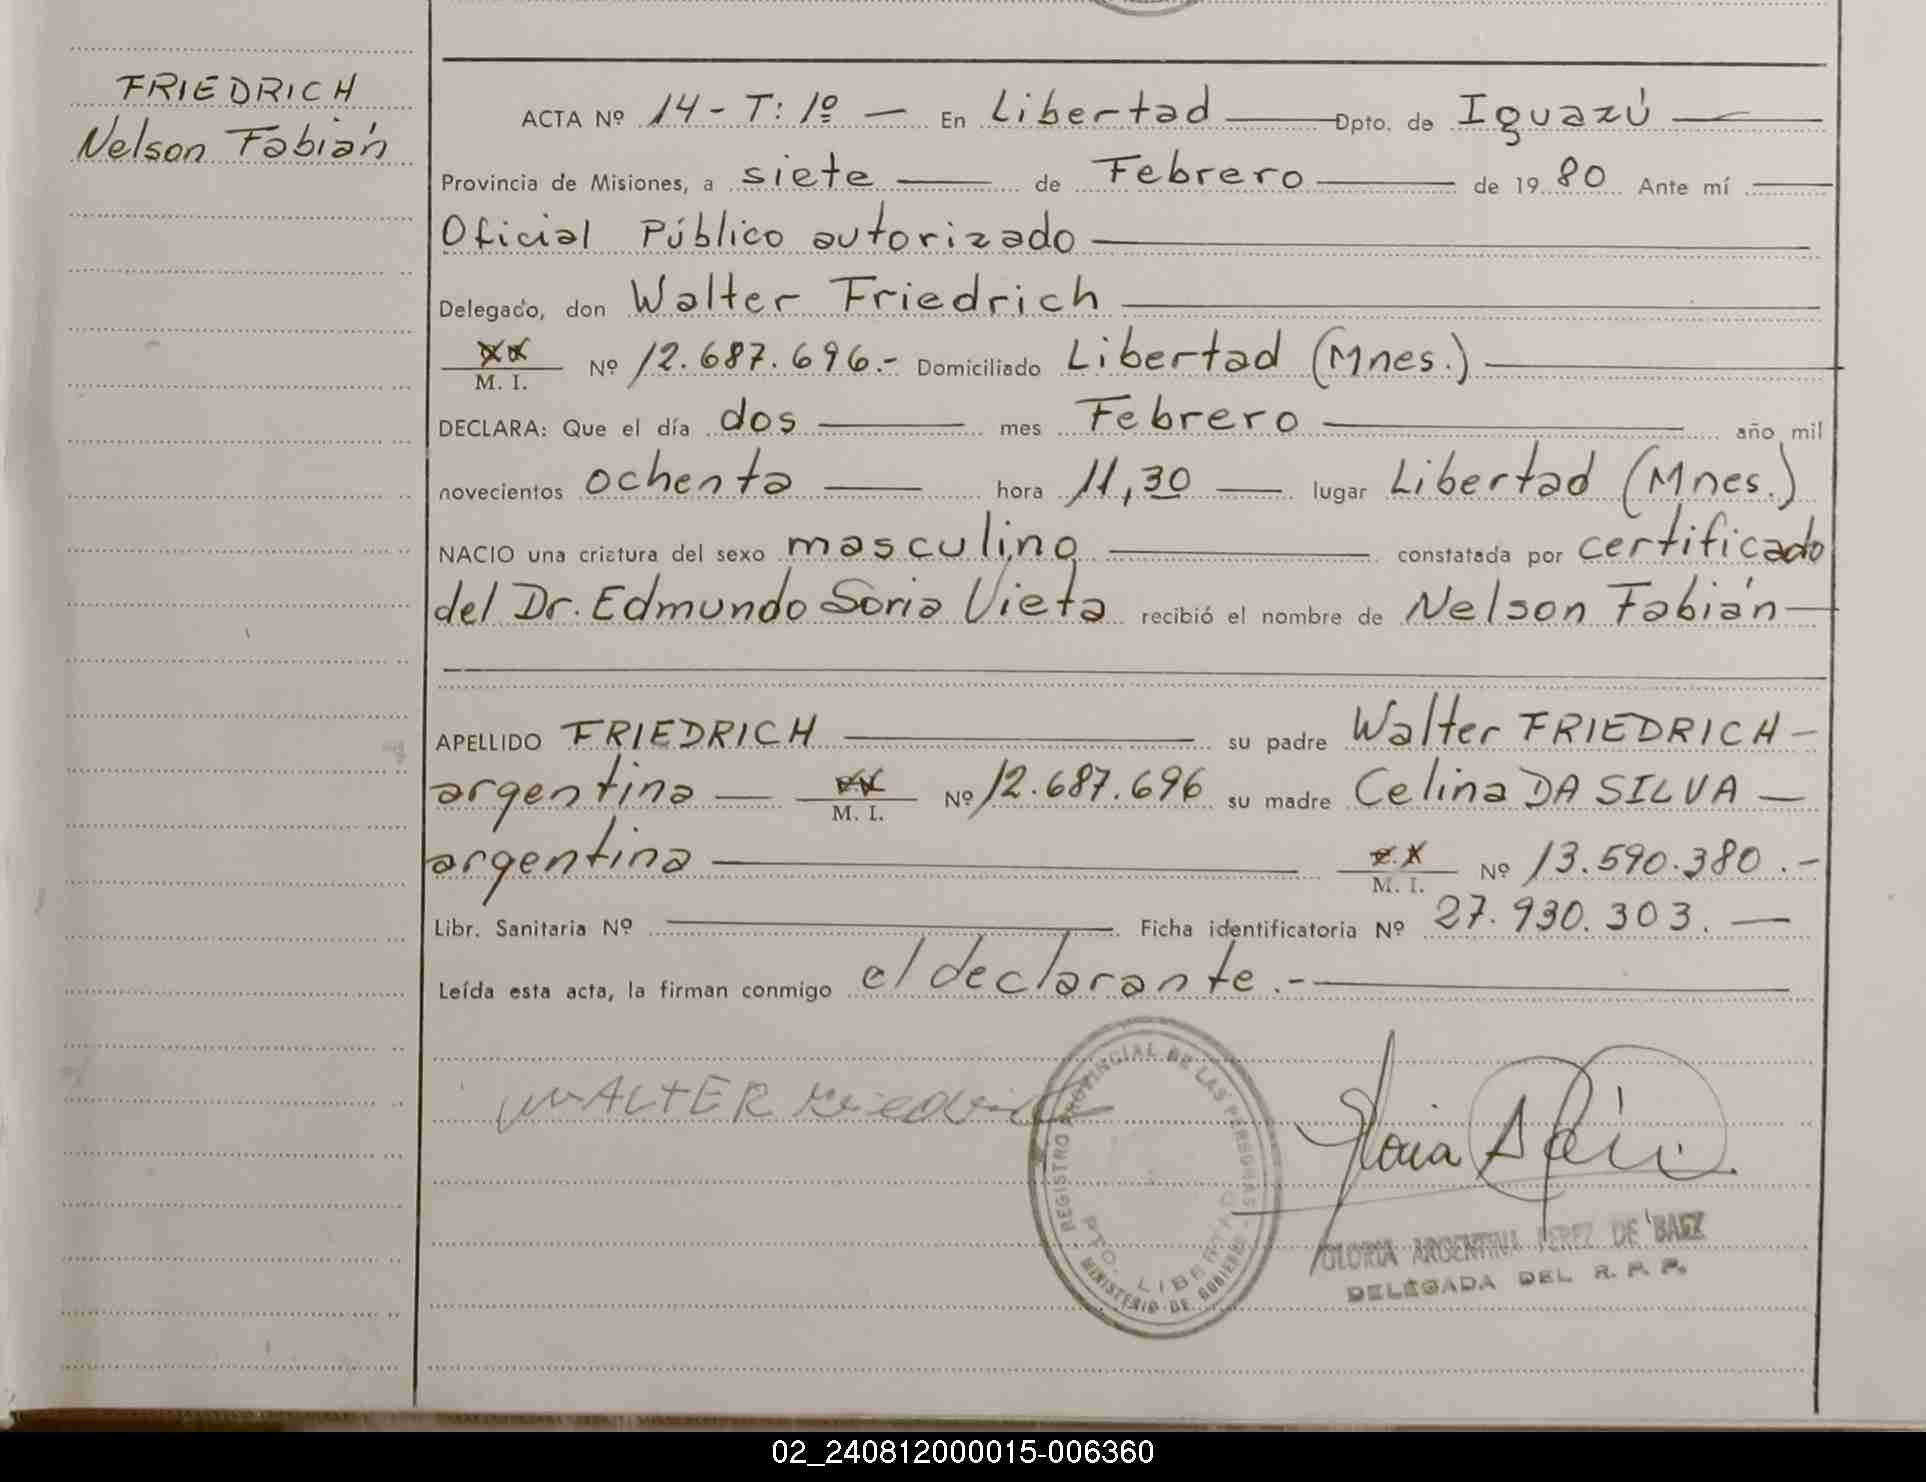 FRIEDRICH
Nelson Fabián
ACTA Nº 14 - T: 1º — En Libertad — Dpto. de Iguazú —
Provincia de Misiones, a siete — de Febrero — de 1980 Ante mí —
Oficial Público autorizado —
Delegado, don Walter Friedrich —
M. I. Nº 12.687.696.- Domiciliado Libertad (Mnes.) —
DECLARA: Que el día dos — mes Febrero — año mil
novecientos ochenta — hora 11,30 — lugar Libertad (Mnes.)
NACIO una criatura del sexo masculino — constatada por certificado
del Dr. Edmundo Soria Vieta recibió el nombre de Nelson Fabián —
APELLIDO FRIEDRICH — su padre Walter FRIEDRICH -
argentina — M. I. Nº 12.687.696 su madre Celina DA SILVA —
argentina — M. I. Nº 13.590.380.-
Libr. Sanitaria Nº — Ficha identificatoria Nº 27.930.303. —
Leída esta acta, la firman conmigo el declarante.- —
WALTER Friedrich
REGISTRO PROVINCIAL DE LAS PERSONAS -
PTO. LIBERTAD
MINISTERIO DE GOBIERNO
Gloria
GLORIA ARGENTINA PEREZ DE BAEZ
DELEGADA DEL R. P. P.
02_240812000015-006360